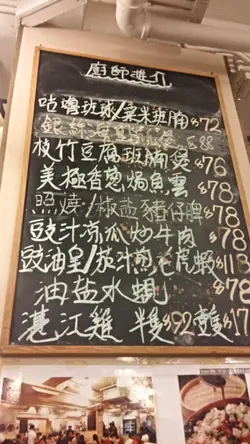 廚師推介
咕嚕班球/粟米班腩 $72
銀 $88
枝竹豆腐班腩煲 $76
美極香蔥焗魚雲 $78
照燒/椒盐豬仔脾 $78
豉汁凉瓜炒牛肉 $78
豉油皇/茄汁煎老虎蝦 $113
油盐水蜆 $78
湛江雞 半$92隻$17